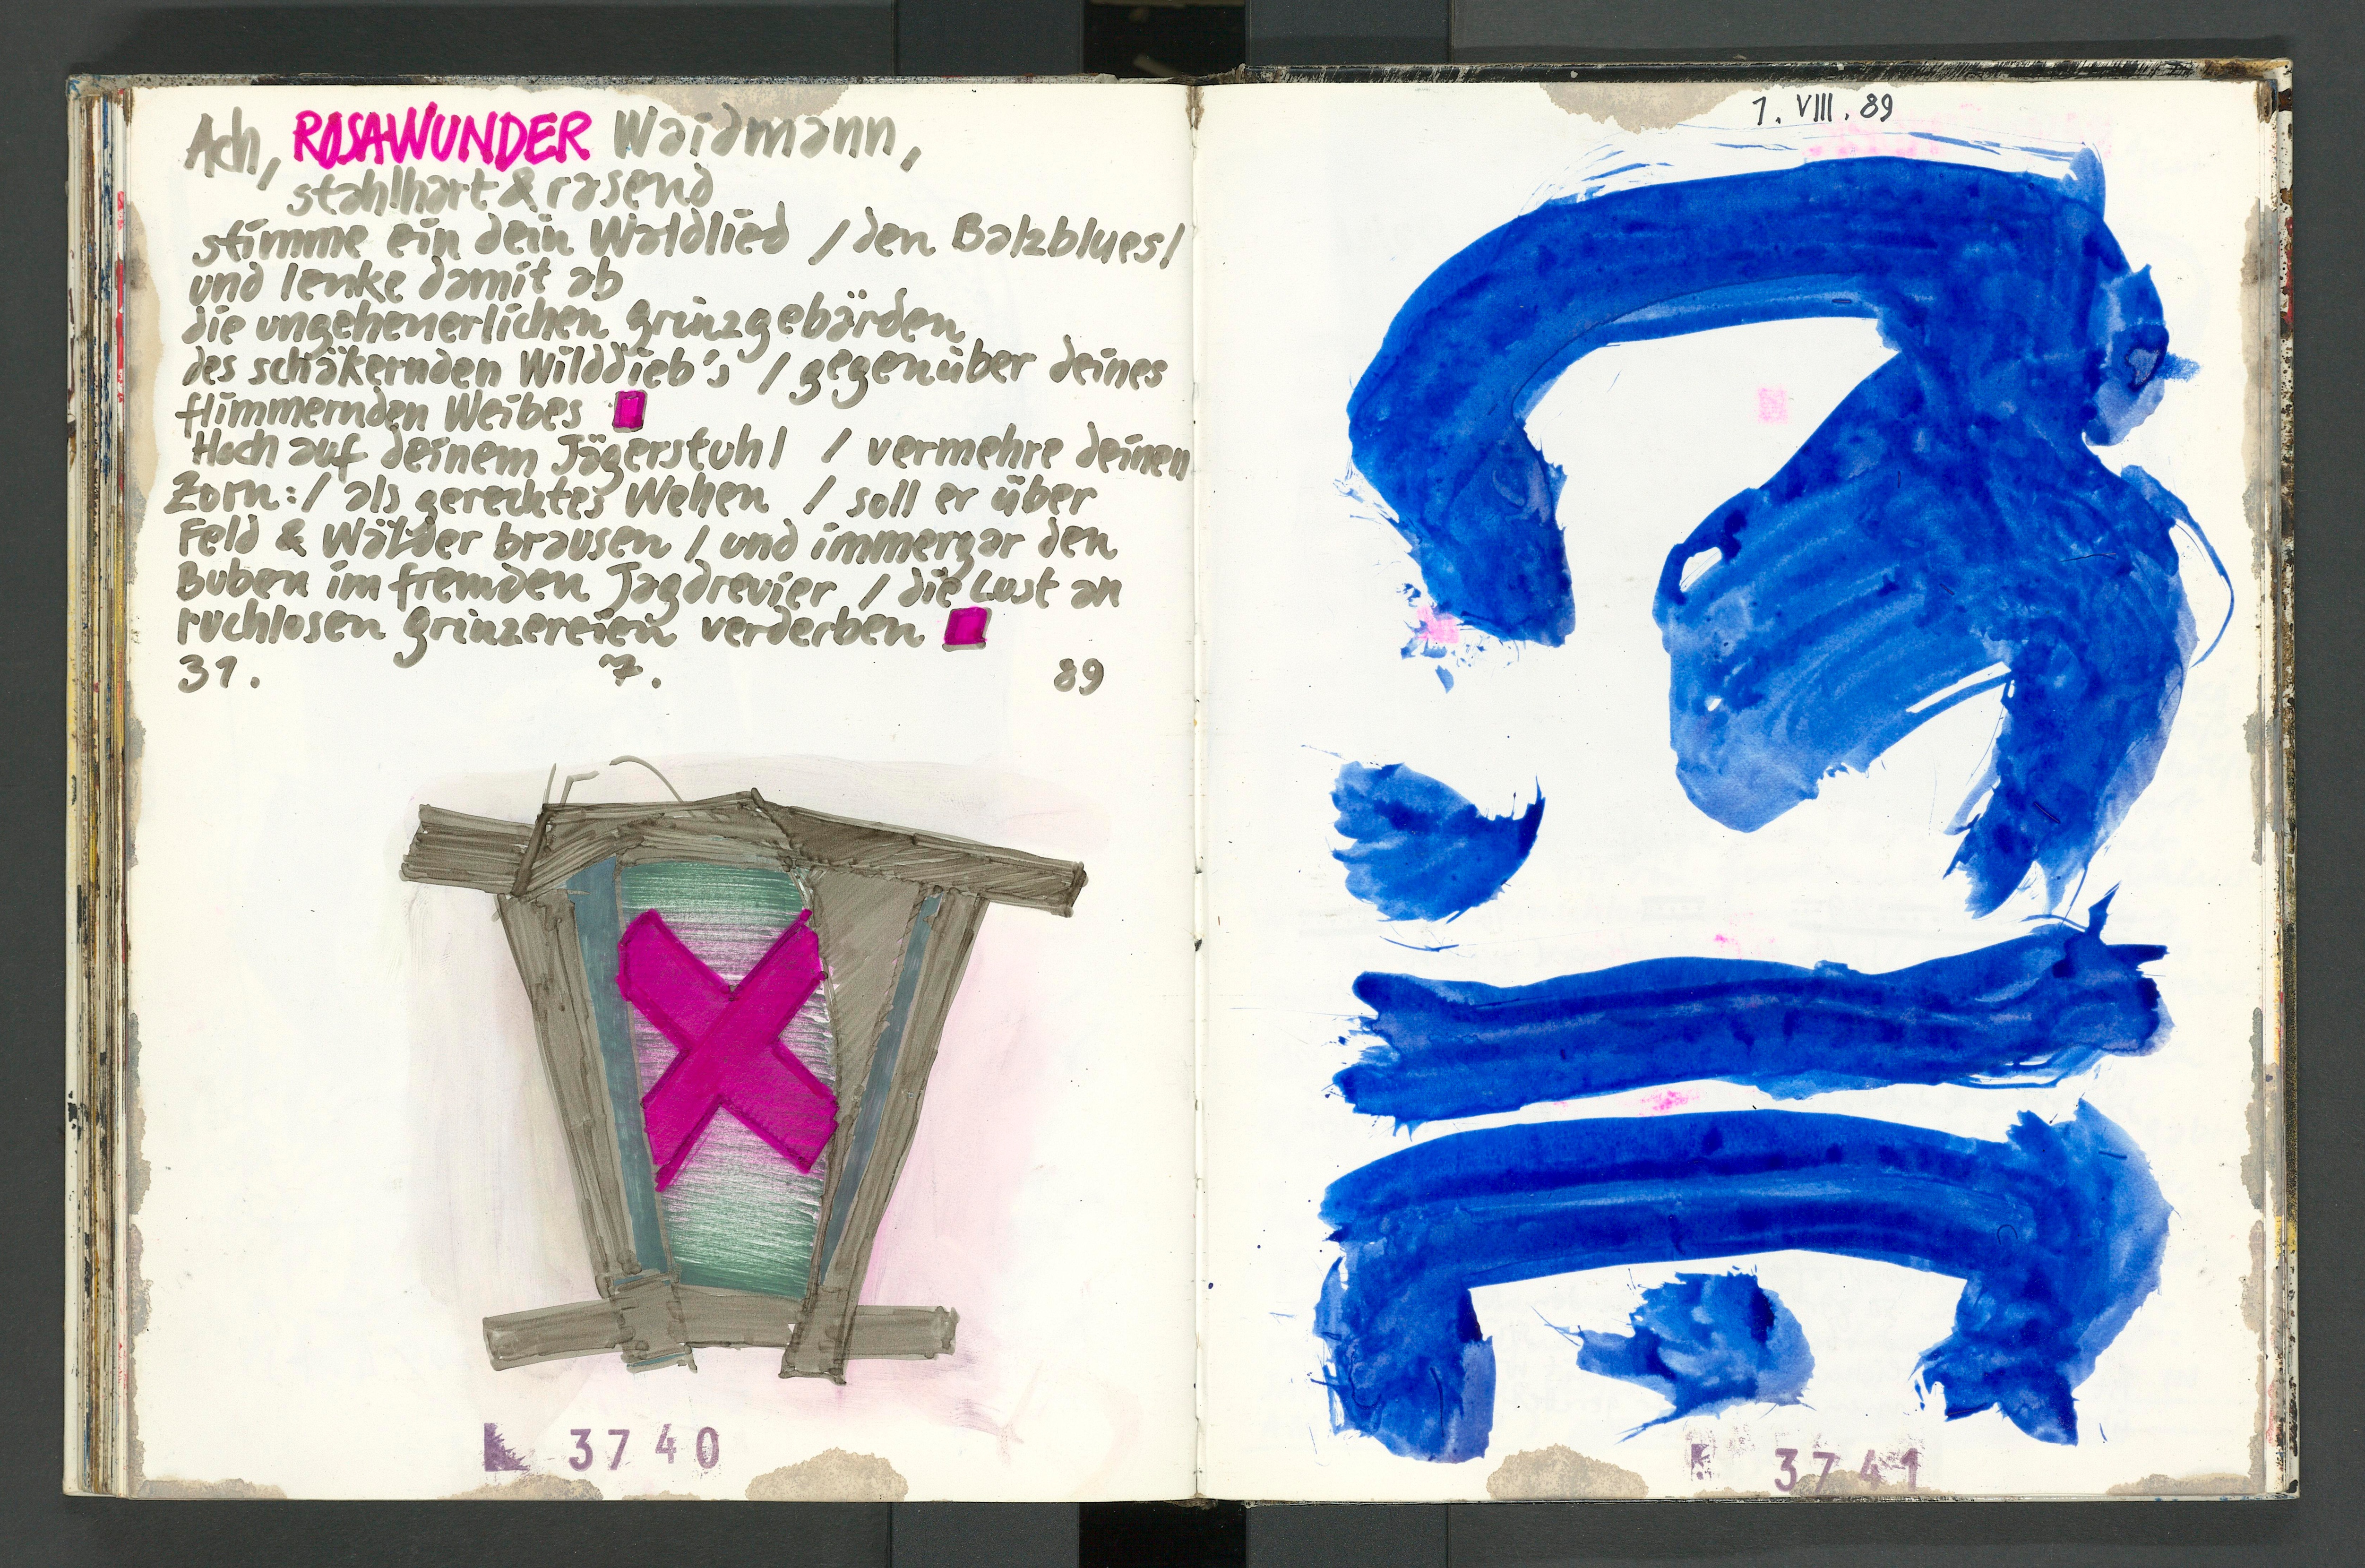 Ach, ROSAWUNDER Waidmann,
stahlhart & rasend
stimme ein dein Waldlied / den Balzblues /
und lenke damit ab
die ungeheuerlichen grinzgebärden
des schäkernden Wilddieb's / gegenüber deines
flimmernden Weibes
Hoch auf deinem Jägerstuhl / vermehre deinen
Zorn: / als gerechtes Wehen / soll er über
Feld & Wälder brausen / und immergar den
Buben im fremden Jagdrevier / die Lust an
ruchlosen grinzereien verderben
31. 7. 89
3740
1. VIII. 89
3741